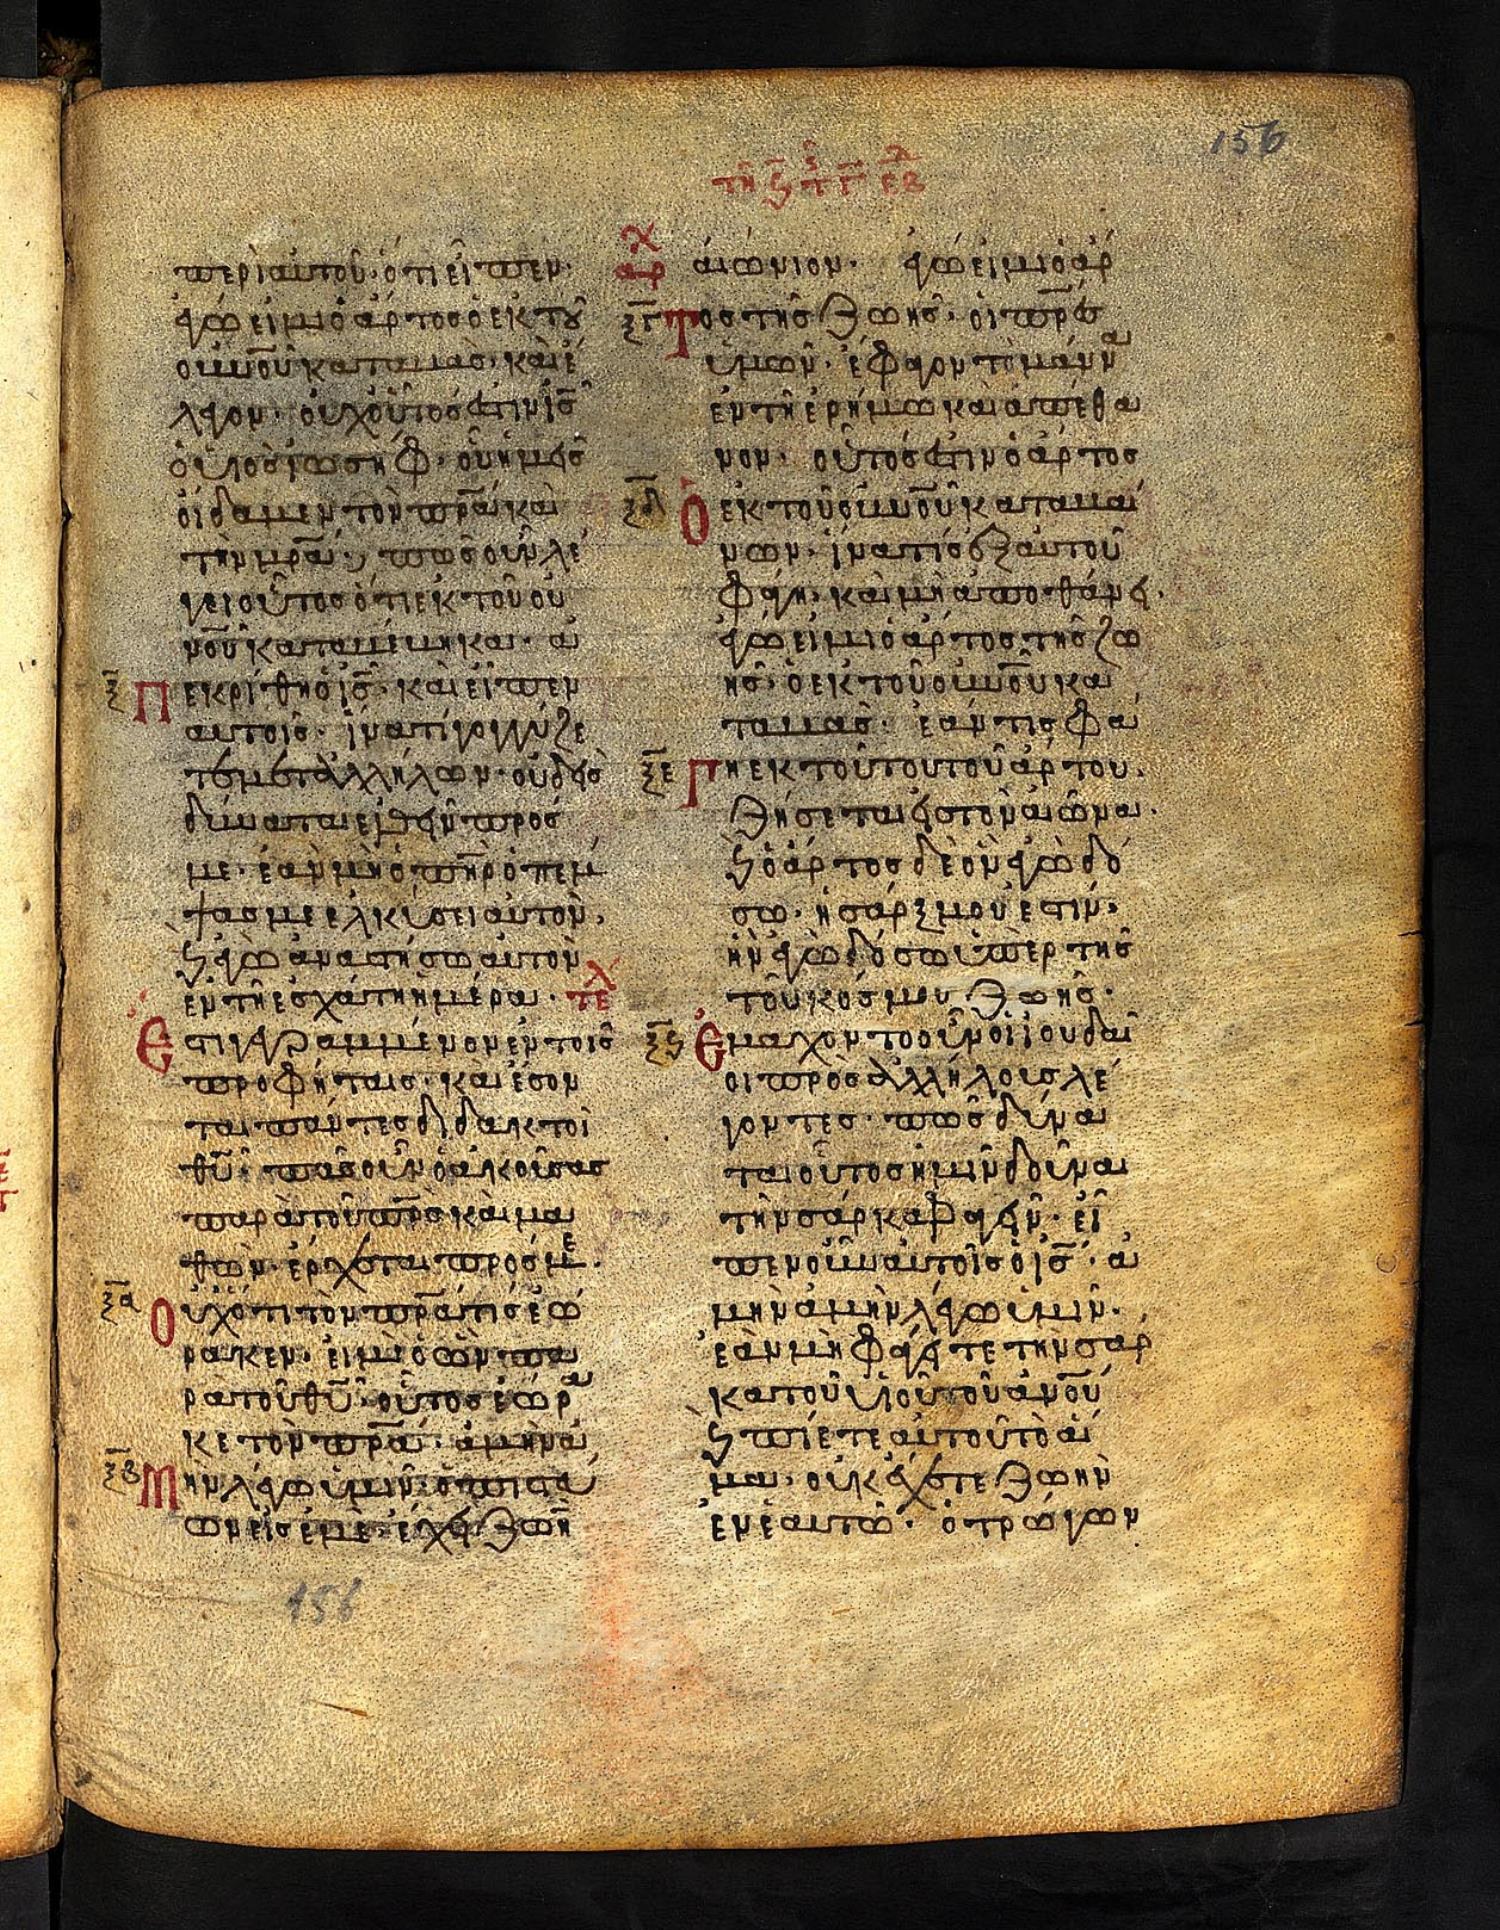 156
τῆ ϛ τ γ εβ
περὶ αὐτοῦ· ὅτι εἶπεν·
ἐγώ εἰμι ὁ ἄρτος ὁ ἐκ τοῦ
οὐνοῦ καταβάς· καὶ ἔ
λεγον· οὐχ οὗτός ἐστιν ἰς
ὁ υἱὸς ἰωσήφ· οὗ ἡμεῖς
οἴδαμεν τὸν πρα καὶ
τὴν μρα· πῶς οὖν λέ
γει οὗτος ὅτι ἐκ τοῦ οὐ
νοῦ καταβέβηκα· ἀ
ξ Πεκρίθη ὁ ἰς· καὶ εἶπεν
αὐτοῖς· ἵνα τί γογγύζε
τε μετ ἀλλήλων· οὐδεὶς
δύναται ἐλθεῖν πρός
με· ἐὰν μὴ ὁ πηρ ὁ πέμ
ψας με ἑλκύσει αὐτόν·
ϛ ἐγὼ ἀναστήσω αὐτὸν
ἐν τῆ ἐσχάτη ἡμέρα· τελ
Ἐστι γεγραμμένον ἐν τοῖς
προφήταις· καὶ ἔσον
ται πάντες διδακτοὶ
θῦ· πᾶς οὖν ὁ ἀκούσας
παρὰ τοῦ πρς καὶ μα
θὼν· ἔρχεται πρός με·
ξα Οὐχ ὅτι τὸν πρα τις ἑώ
ρακεν· εἰ μὴ ὁ ὢν πα
ρὰ τοῦ θῦ· οὗτος ἑώρα
κε τὸν πρα· ἀμὴν ἀ
ξβ Μὴν λέγω ὑμῖν· ὁ πιστεύ
ων εἰς ἐμὲ· ἔχει ζωὴν
156
αρχ αἰώνιον· ἐγώ εἰμι ὁ ἄρ
ξγ Τος τῆς ζωῆς· οἱ πρες
ὑμῶν· ἔφαγον τὸ μάννα
ἐν τῆ ἐρήμω καὶ ἀπέθα
νον· οὗτός ἐστιν ὁ ἄρτος
ξδ Ὁ ἐκ τοῦ οὐνοῦ καταβαί
νων· ἵνα τις ἐξ αὐτοῦ
φάγη· καὶ μὴ ἀποθάνει·
ἐγώ εἰμι ὁ ἄρτος τῆς ζω
ῆς· ὁ ἐκ τοῦ οὐνοῦ κα
ταβάς· ἐάν τις φά
ξε Γη ἐκ τούτου τοῦ ἄρτου·
ζήσεται εἰς τὸν αἰῶνα·
ϛ ὁ ἄρτος δὲ ὃν ἐγὼ δώ
σω· ἡ σάρξ μου ἐστίν·
ἣν ἐγὼ δώσω ὑπὲρ τῆς
τοῦ κόσμου ζωῆς·
ξϛ Ἐμάχοντο οὖν οἱ ἰουδαῖ
οι πρὸς ἀλλήλους λέ
γοντες· πῶς δύνα
ται οὗτος ἡμῖν δοῦναι
τὴν σάρκα φαγεῖν· εἶ
πεν οὖν αὐτοῖς ὁ ἰς· ἀ
μὴν ἀμὴν λέγω ὑμῖν·
ἐὰν μὴ φάγετε τὴν σάρ
κα τοῦ υἱοῦ τοῦ ἀνοῦ
ϛ πίετε αὐτοῦ τὸ αἷ
μα· οὐκ ἔχετε ζωὴν
ἐν ἑαυτῶ· ὁ τρώγων